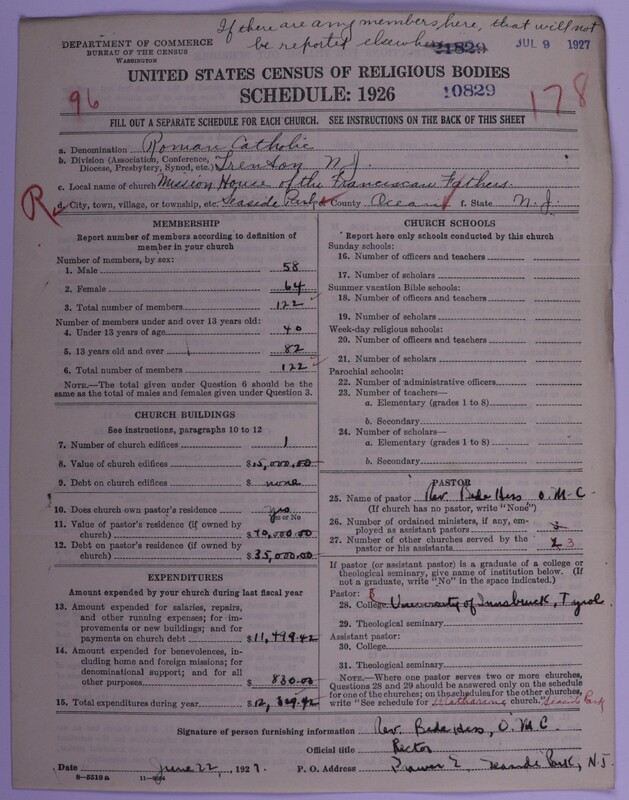 If there are any members here, that will not
be reported elsewhere
DEPARTMENT OF COMMERCE
BUREAU OF THE CENSUS
WASHINGTON
21829
JUL 9 1927
UNITED STATES CENSUS OF RELIGIOUS BODIES
96
SCHEDULE: 1926
10829
178
FILL OUT A SEPARATE SCHEDULE FOR EACH CHURCH. SEE INSTRUCTIONS ON THE BACK OF THIS SHEET
a. Denomination Roman Catholic
b. Division (Association, Conference, Diocese, Presbytery, Synod, etc.) Trenton N.J.
c. Local name of church Mission House of the Franciscan Fathers.
R
d. City, town, village, or township, etc. Seaside Park e. County Ocean f. State N.J.
MEMBERSHIP
Report number of members according to definition of
member in your church
Number of members, by sex:
1. Male 58
2. Female 64
3. Total number of members 122
Number of members under and over 13 years old:
4. Under 13 years of age 40
5. 13 years old and over 82
6. Total number of members 122
NOTE.—The total given under Question 6 should be the
same as the total of males and females given under Question 3.
CHURCH BUILDINGS
See instructions, paragraphs 10 to 12
7. Number of church edifices 1
8. Value of church edifices $15,000.00
9. Debt on church edifices $ none
10. Does church own pastor's residence? yes
Yes or No
11. Value of pastor's residence (if owned by
church) $
12. Debt on pastor's residence (if owned by
church) $35,000.00
EXPENDITURES
Amount expended by your church during last fiscal year
13. Amount expended for salaries, repairs,
and other running expenses; for im-
provements or new buildings; and for
payments on church debt $11,499.42
14. Amount expended for benevolences, in-
cluding home and foreign missions; for
denominational support; and for all
other purposes $ 830.00
15. Total expenditures during year $12,329.42
CHURCH SCHOOLS
Report here only schools conducted by this church
Sunday schools:
16. Number of officers and teachers
17. Number of scholars
Summer vacation Bible schools:
18. Number of officers and teachers
19. Number of scholars
Week-day religious schools:
20. Number of officers and teachers
21. Number of scholars
Parochial schools:
22. Number of administrative officers
23. Number of teachers—
a. Elementary (grades 1 to 8)
b. Secondary
24. Number of scholars—
a. Elementary (grades 1 to 8)
b. Secondary
PASTOR
25. Name of pastor Rev. Beda Hess O.M.C.
(If church has no pastor, write "None")
26. Number of ordained ministers, if any, em-
ployed as assistant pastors
27. Number of other churches served by the
pastor or his assistants 3
If pastor (or assistant pastor) is a graduate of a college or
theological seminary, give name of institution below. (If
not a graduate, write "No" in the space indicated.)
Pastor:
28. College University of Innsbruck, Tyrol
29. Theological seminary
Assistant pastor:
30. College
31. Theological seminary
NOTE.—Where one pastor serves two or more churches,
Questions 28 and 29 should be answered only on the schedule
for one of the churches; on the schedules for the other churches,
write "See schedule for church." Seaside Park
Signature of person furnishing information Rev. Beda Hess, O.M.C.
Official title Rector
Date June 22, 1927. P. O. Address Drawer E, Seaside Park, N.J.
8—5519 a